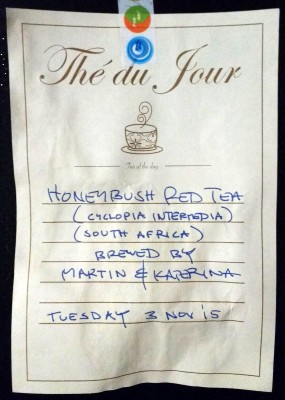 Thé du Jour
Tea of the day
HONEYBUSH RED TEA
(CYCLOPIA INTERMEDIA)
(SOUTH AFRICA)
BREWED BY
MARTIN & KATERINA
TUESDAY 3 NOV '15